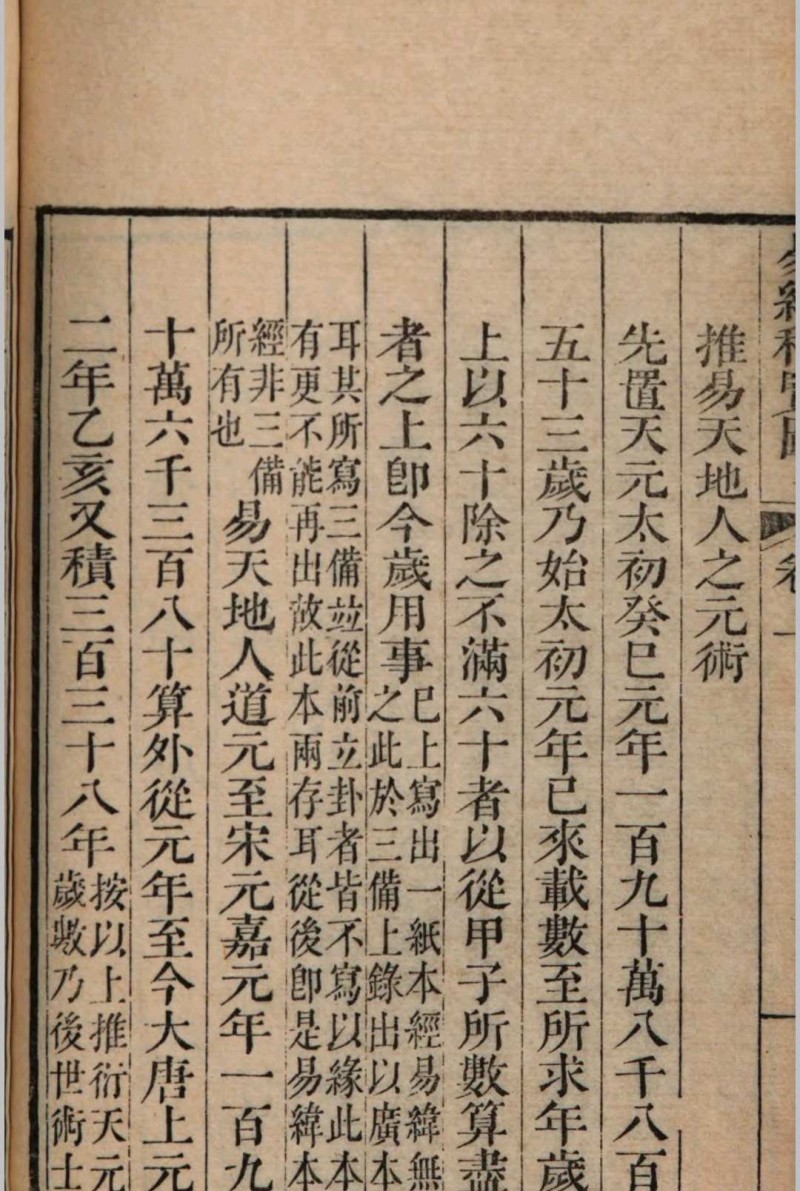 推易天地人之元術
先置天元太初癸巳元年一百九十萬八千八百
五十三歲乃始太初元年已來載數至所求年歲
上以六十除之不滿六十者以從甲子所數算盡
者之上卽今歲用事
巳上寫出一紙本經易緯無
之此於三備上錄出以廣本
耳其所寫三備並從前立卦者皆不寫以緣此本
有更不能再出故此本兩存耳從後卽是易緯本
經非三備
所有也
易天地人道元至宋元嘉元年一百九
十萬六千三百八十算外從元年至今大唐上元
二年乙亥又積三百三十八年
按以上推衍天元
歲數乃後世術士